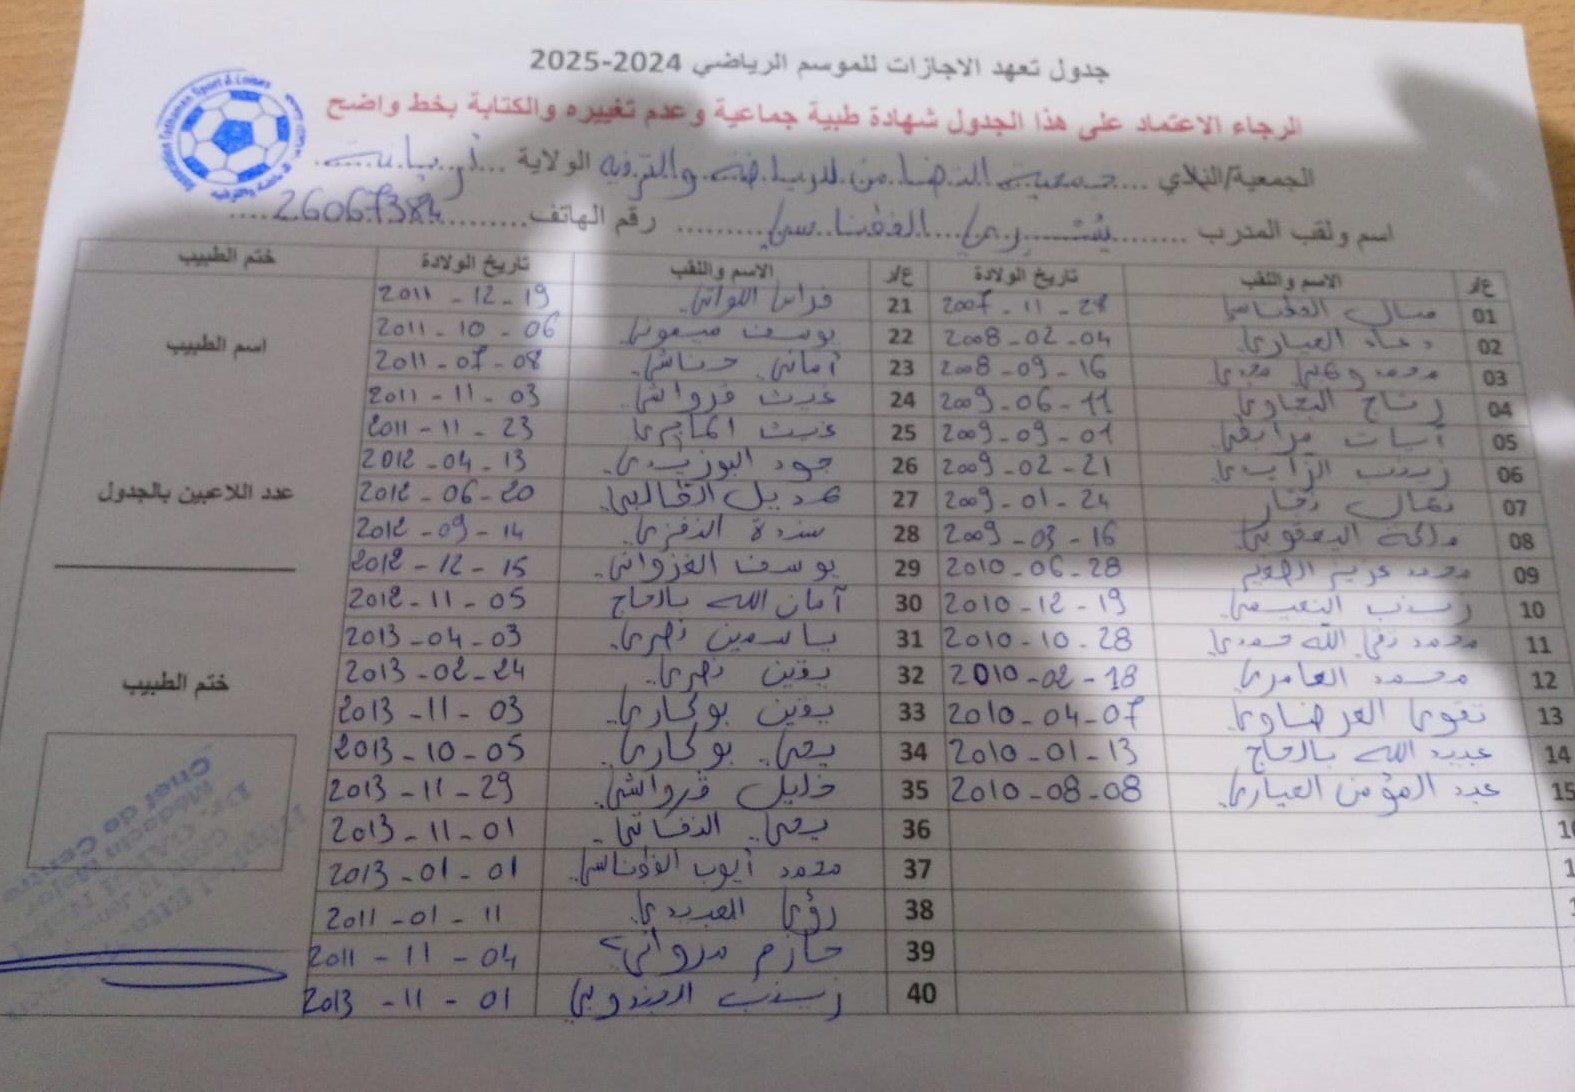 جدول تعهد الاجازات للموسم الرياضي 2024-2025
الرجاء الاعتماد على هذا الجدول شهادة طبية جماعية وعدم تغييره والكتابة بخط واضح
الجمعية/النادي ....جمعية التضامن للرياضة والترفيه الولاية ...أريانة.....
اسم ولقب المدرب ........يسري الفقناسي......... رقم الهاتف.........26067384....
ع/ر الاسم واللقب تاريخ الولادة ع/ر الاسم واللقب تاريخ الولادة ختم الطبيب
01 2007-11-28 21 فراس اللواتي 2011-12-19
02 دعاء العياري 2008-02-04 22 يوسف ميموني 2011-10-06
03 محمد 2008-09-16 23 أماني حناشي 2011-07-08
اسم الطبيب
04 رتاج 2009-06-11 24 غيث قرواشي 2011-11-03
05 آيات مرابطي 2009-09-01 25 غيث الماجري 2011-11-23
06 زينب الزايدي 2009-02-21 26 جود البوزيدي 2012-04-13
07 2009-01-24 27 هديل القالبي 2012-06-20
عدد اللاعبين بالجدول
08 ملاكة اليعقوبي 2009-03-16 28 سندة النفزي 2012-09-14
09 محمد عزيز 2010-06-28 29 يوسف الغزواني 2012-12-15
10 زينب النعيمي 2010-12-19 30 أمان الله بالحاج 2012-11-05
11 محمد تقي الله حمدي 2010-10-28 31 ياسمين نصري 2013-04-03
12 محمد العامري 2010-02-18 32 يقين نصري 2013-02-24
ختم الطبيب
13 تقوى العرضاوي 2010-04-07 33 يقين بوكاري 2013-11-03
14 عبد الله بالحاج 2010-01-13 34 يحي بوكاري 2013-10-05
15 عبد المؤمن العياري 2010-08-08 35 خليل قرواشي 2013-11-29
36 يحي 2013-11-01
37 محمد أيوب الفقناسي 2013-01-01
38 رؤى العبيدي 2011-01-11
39 حازم مرواني 2011-11-04
40 زينب الجندوبي 2013-11-01